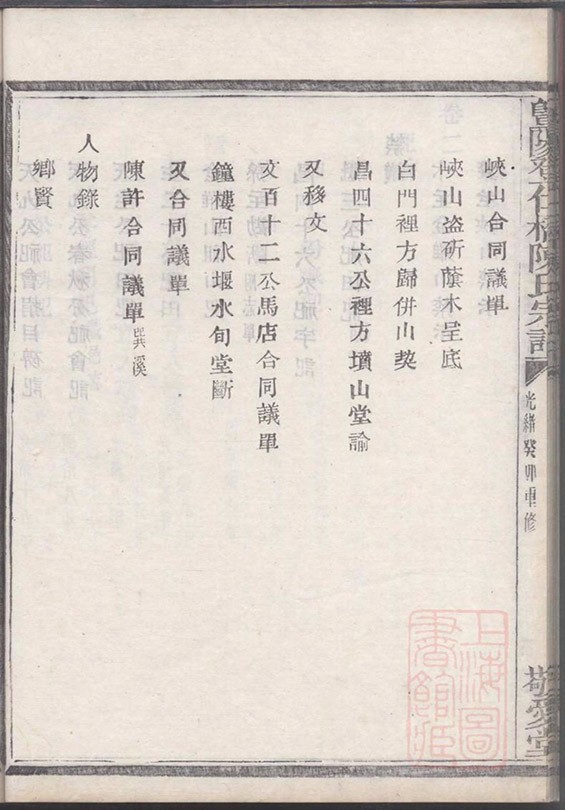 暨陽
陳氏宗譜
光緒癸卯重修
敬愛堂
峽山合同議單
峽山盜斫蔭木呈底
白門裡方歸併山契
昌四十六公裡方墳山堂諭
又移文
文百十二公馬店合同議單
鐘樓西水堰水旬堂斷
又合同議單
陳許合同議單巽溪
人物錄
鄉賢
上海圖書館藏